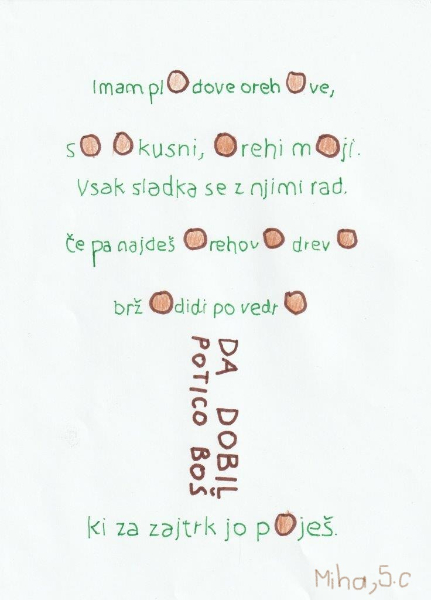 Imam plodove orehove,
so okusni, orehi moji.
Vsak sladka se z njimi rad.
Če pa najdeš orehovo drevo
brž odidi po vedro
DA DOBIL
POTICO BOŠ
ki za zajtrk jo poješ.
Miha, 5.c